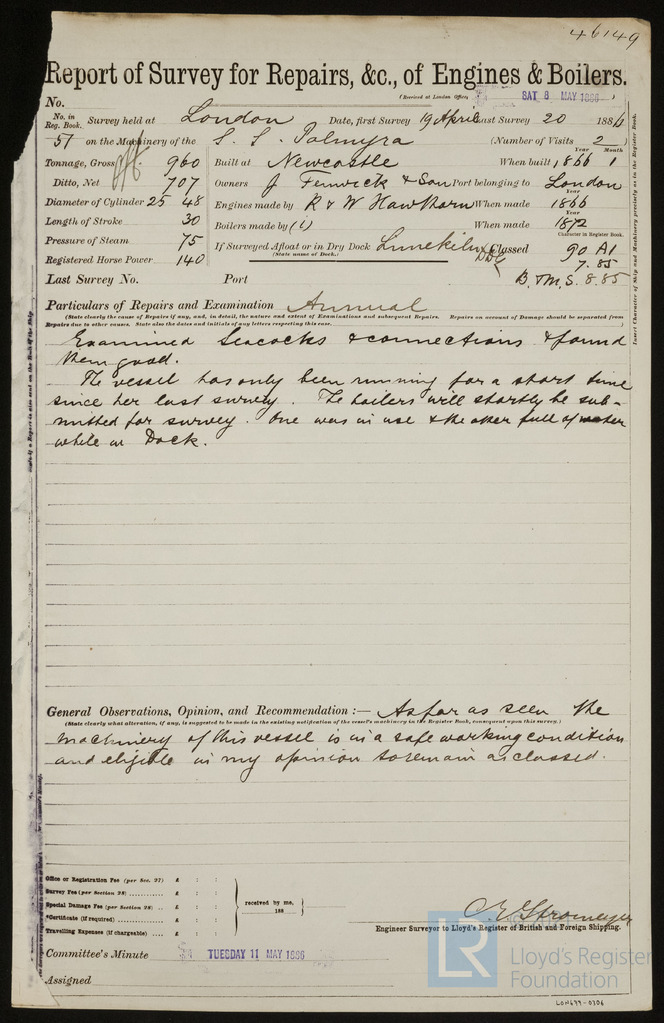 46149
Report of Survey for Repairs, &c., of Engines & Boilers.
(Received at London Office, SAT 8 MAY 1886
No.
No. in Reg. Book. Survey held at London Date, first Survey 19 April Last Survey 20 1886
51 on the Machinery of the S. S. Palmyra (Number of Visits 2)
Tonnage, Gross 960 Built at Newcastle When built Year 1866 Month 1
Ditto, Net 707 Owners J Fenwick & Son Port belonging to London
Diameter of Cylinder 25 48 Engines made by R & W Hawthorn When made 1866
Length of Stroke 30 Boilers made by (1) When made Year 1872
Pressure of Steam 75 If Surveyed Afloat or in Dry Dock Limekiln DDk Classed Character in Register Book. 90 A1
(State name of Dock.) 7.85
Registered Horse Power 140
B. & M.S. 8.85
Last Survey No. Port
Particulars of Repairs and Examination Annual
(State clearly the cause of Repairs if any, and, in detail, the nature and extent of Examinations and subsequent Repairs. Repairs on account of Damage should be separated from
Repairs due to other causes. State also the dates and initials of any letters respecting this case. )
Examined Seacocks & connections & found
them good.
The vessel has only been running for a short time
since her last survey. The boilers will shortly be sub-
mitted for survey. One was in use & the other full of water
while in Dock.
General Observations, Opinion, and Recommendation :— As far as seen the
(State clearly what alteration, if any, is suggested to be made in the existing notification of the vessel's machinery in the Register Book, consequent upon this survey.)
machinery of this vessel is in a safe working condition
and eligible in my opinion to remain as classed.
Office or Registration Fee (per Sec. 27) £ : :
Survey Fee (per Section 28) £ : :
Special Damage Fee (per Section 28) £ : :
*Certificate (if required) £ : :
Travelling Expenses (if chargeable) £ : :
received by me,
188
C E Stromeyer
Engineer Surveyor to Lloyd's Register of British and Foreign Shipping.
Committee's Minute TUESDAY 11 MAY 1886
Assigned
Insert Character of Ship and Machinery precisely as in the Register Book.
LR Lloyd's Register
Foundation
LON699-0306